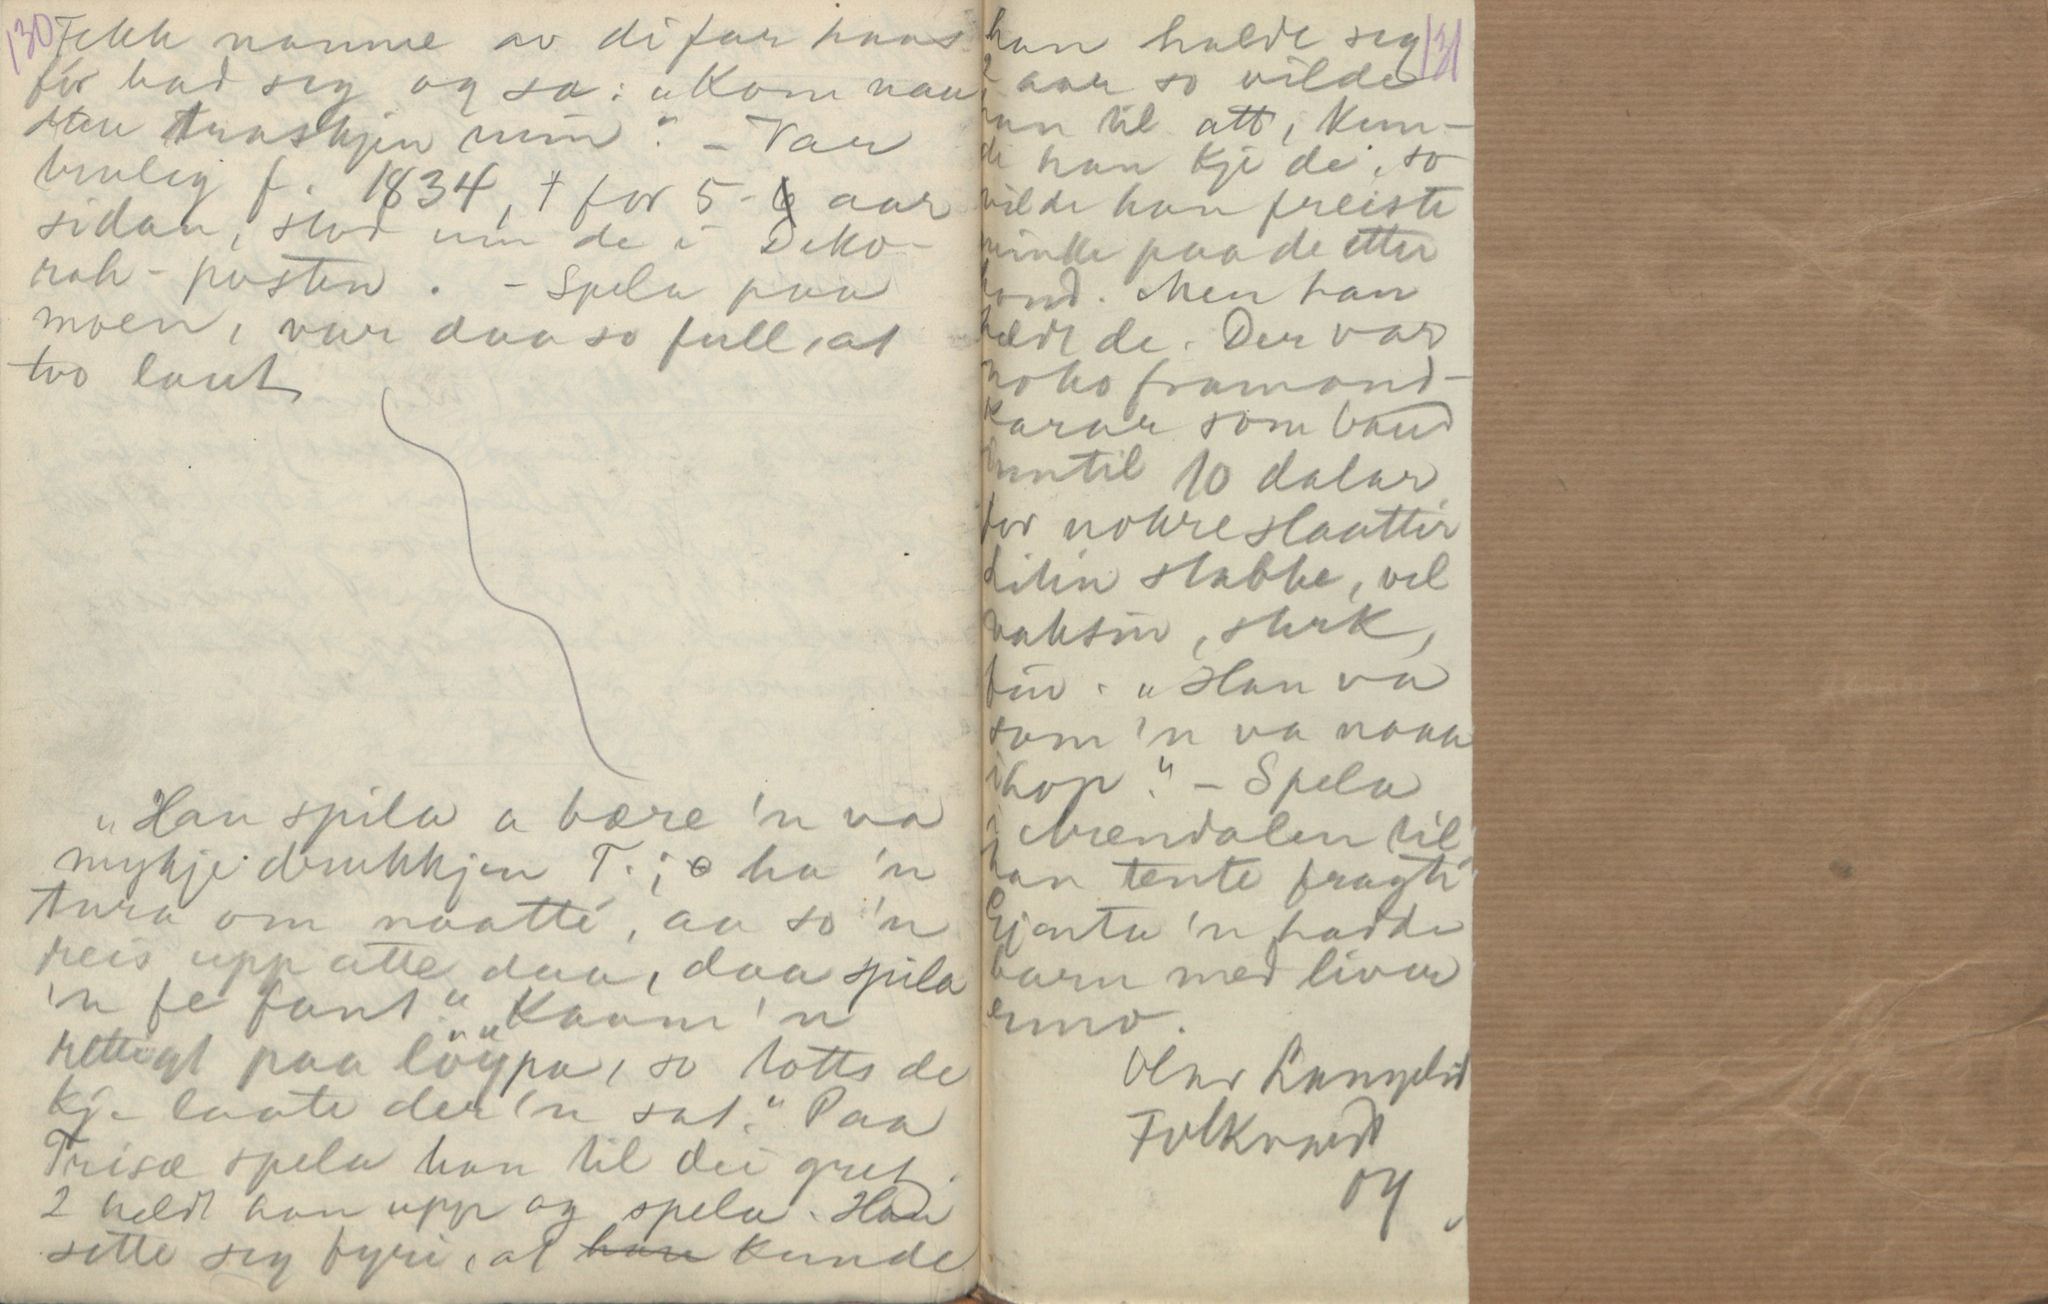 130
Fekk namne av di far hans
før bad seg og sa: „Kom naa
du traskjen min". - Var
truleg f. 1834, † for 5-6 aar
sidan, stod um de i Deko-
rah-posten. - Spela paa
moen, var daa so full, at
tvo laut
„Han spila a bære 'n va
mykje drukkjen T.; o ha 'n
tura om naatte, aa so 'n
reis upp atte daa, daa spila
'n fe fant" „Kaam 'n
rettigt paa löÿpa, so totts de
kje laate der 'n sat." Paa
Trisæ spela han til dei gret.
2 heldt han upp og spela. Han
sette seg fyri, at han kunde
131
han halde seg
2 aar so vilde
han til att, Kun-
de han kje de, so
vilde han freiste
minke paa de etter
hond. Men han
heldt de. Der var
noko framand-
karar som baud
inntil 10 dalar
for nokre slaatter
Liten stabbe, vel
vaksin, sterk,
fin. „Han va
som 'n va naaa
ihop." - Spela
i Arendalen til
han tente fragti
Gjenta 'n hadde
barn med livar
enno.
Olav Langelid
Folkvard
04